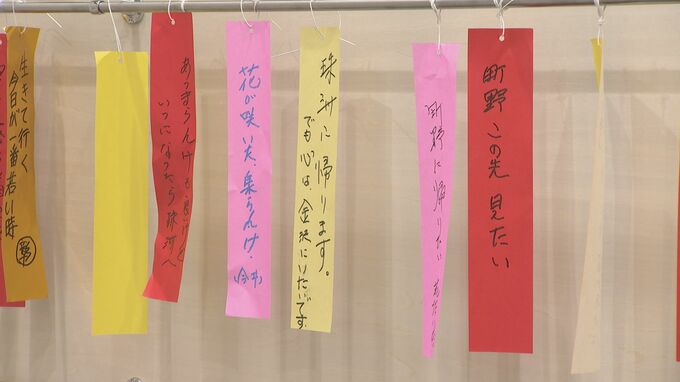 町野 この先 見たい
町野に帰りたい
珠洲に帰ります。
でも心は、金沢にいたいです。
花が咲いた、集らんけ、
あつまらんけも
いつになったら
生きて行く
今日が一番若い時